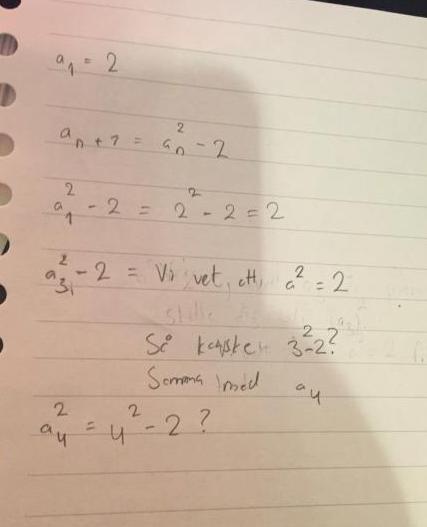 a₁ = 2
aₙ + 1 = aₙ² - 2
a₁² - 2 = 2² - 2 = 2
a₃² - 2 = Vi vet, att, a² = 2
Så kanske 3² - 2?
Samma med a₄
a₄² = 4² - 2 ?